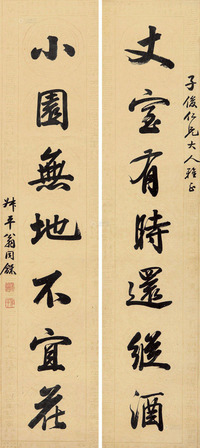 子俊仁兄大人雅正
丈室有時還縱酒
小園無地不宜花
叔平翁同龢